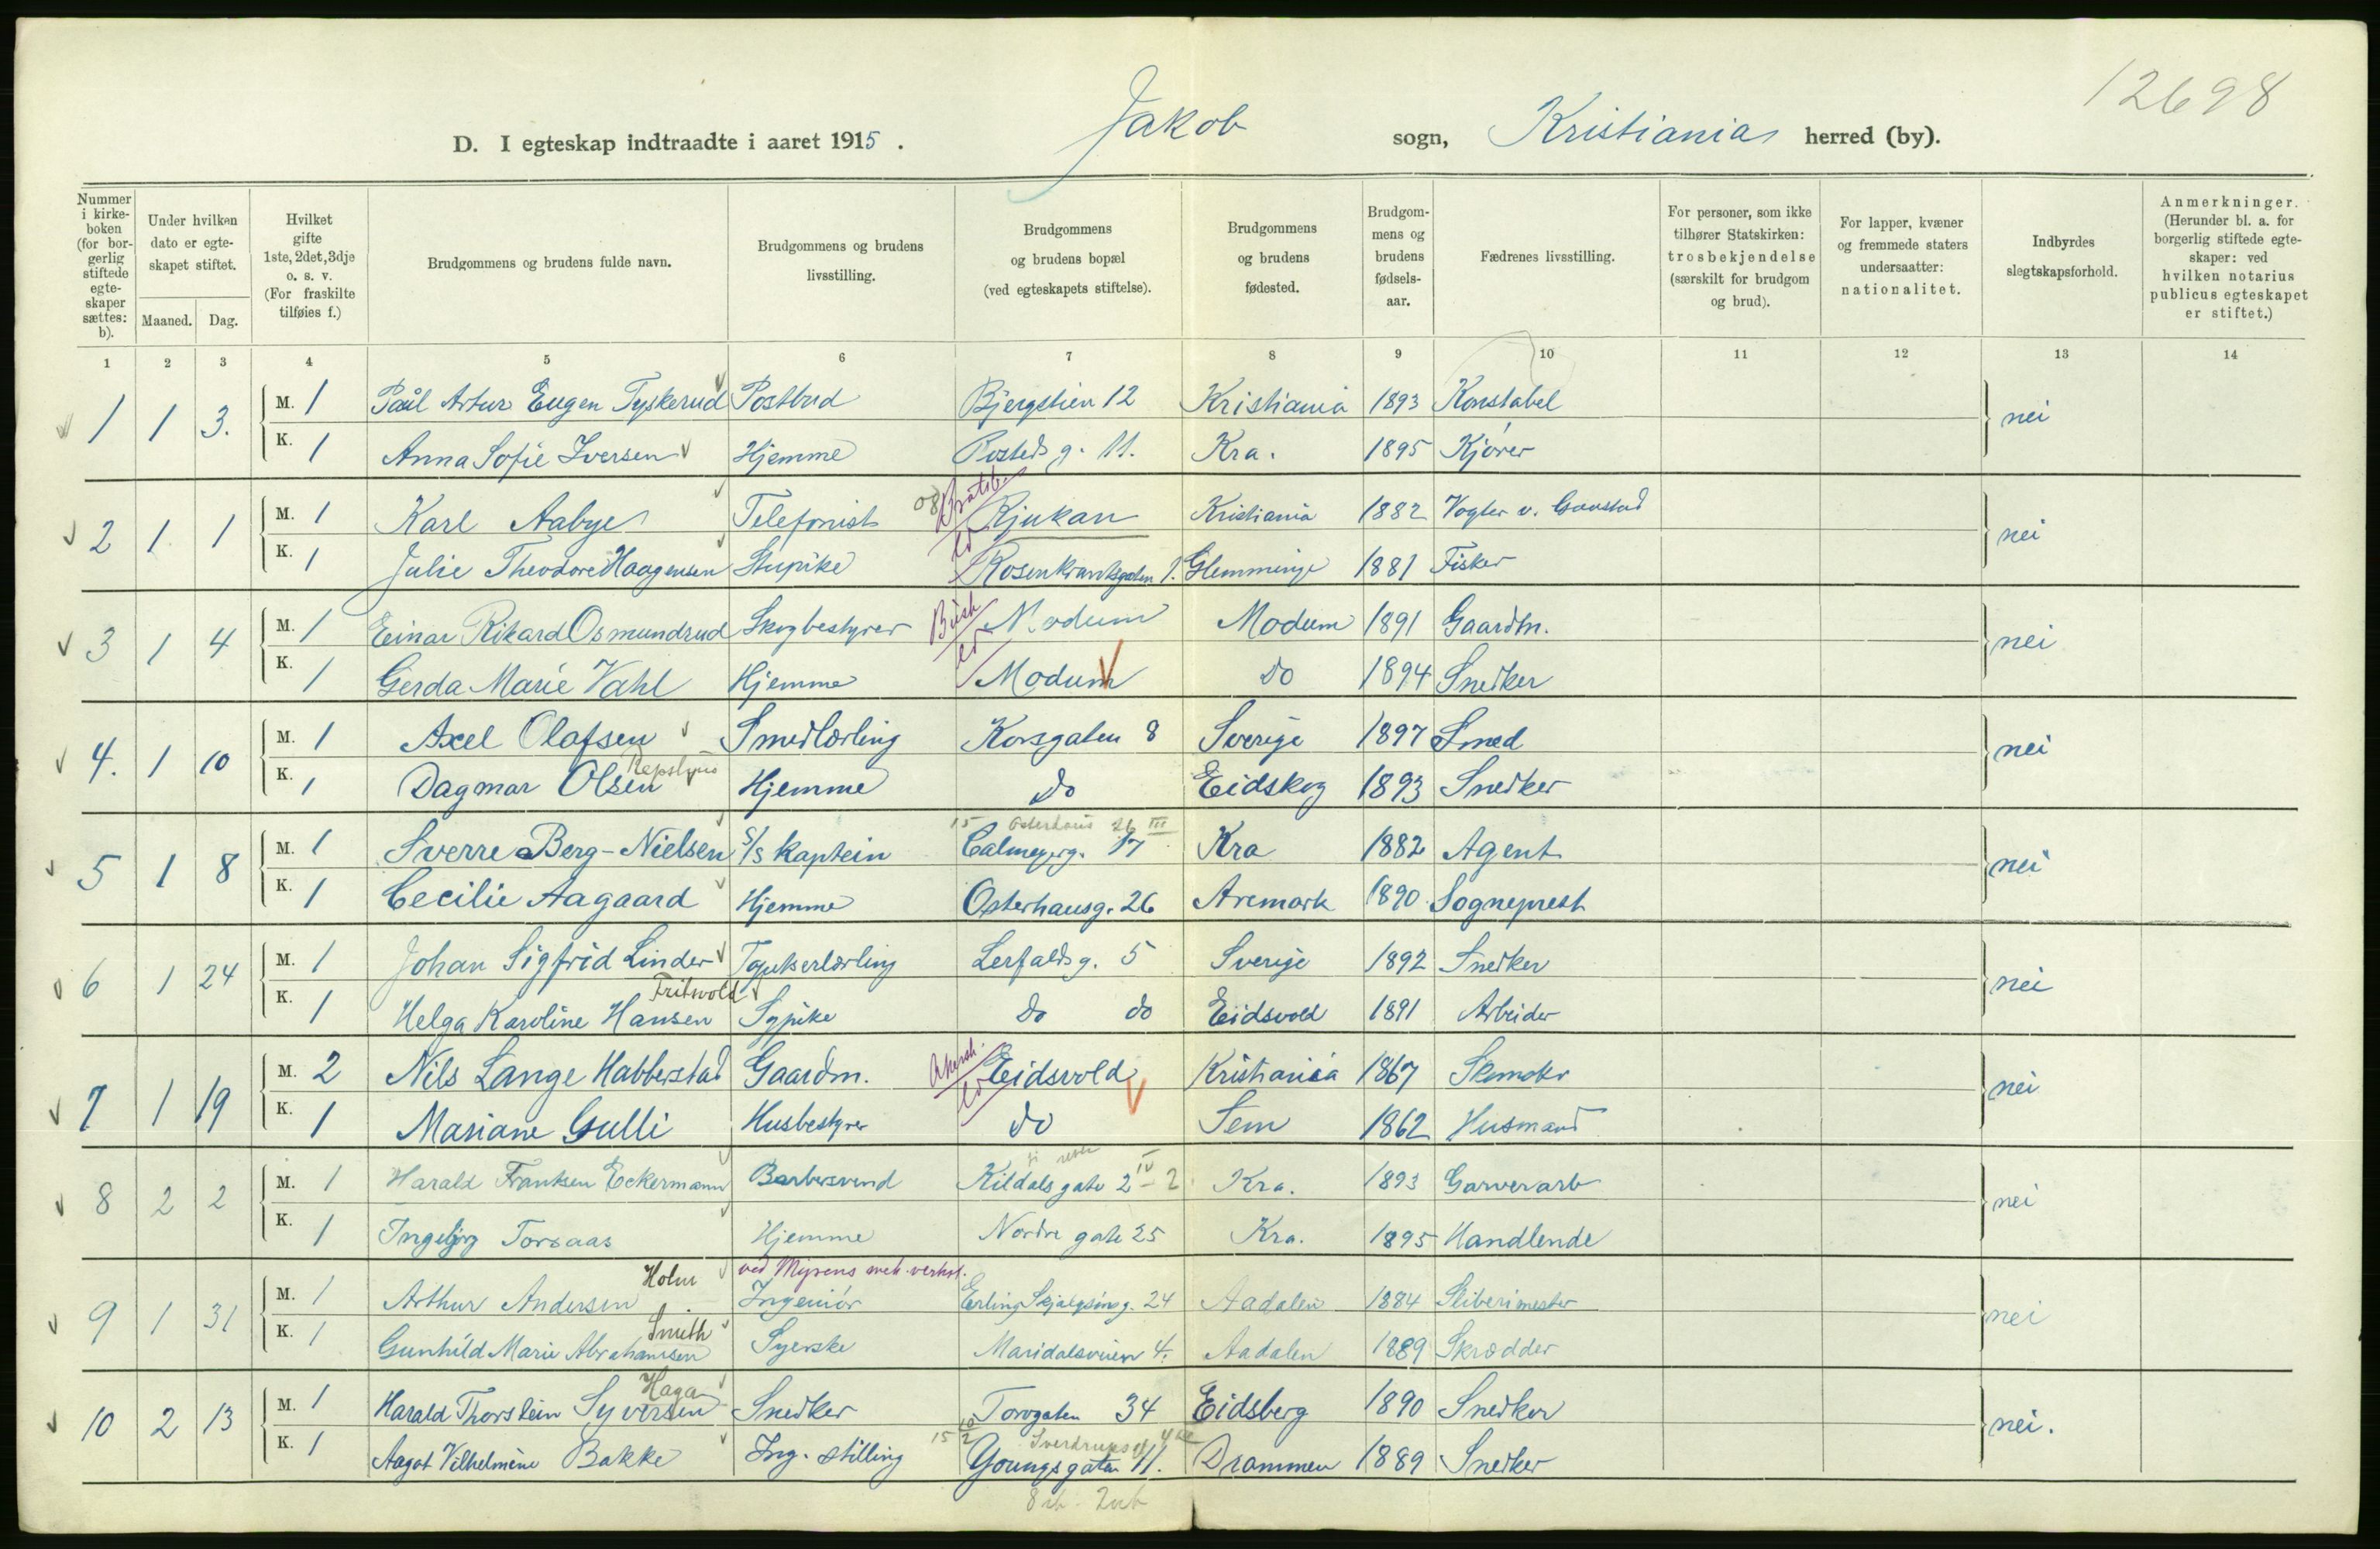 12698
D. I egteskap indtraadte i aaret 1915. Jakob sogn, Kristiania herred (by).
Nummer i kirkeboken (for borgerlig stiftede egteskaper sættes: b).
Under hvilken dato er egteskapet stiftet.
Maaned. Dag.
Hvilket gifte 1ste, 2det, 3dje o. s. v. (For fraskilte tilføies f.)
Brudgommens og brudens fulde navn.
Brudgommens og brudens livsstilling.
Brudgommens og brudens bopæl (ved egteskapets stiftelse).
Brudgommens og brudens fødested.
Brudgommens og brudens fødselsaar.
Fædrenes livsstilling.
For personer, som ikke tilhører Statskirken: trosbekjendelse (særskilt for brudgom og brud).
For lapper, kvæner og fremmede staters undersaatter: nationalitet.
Indbyrdes slegtskapsforhold.
Anmerkninger. (Herunder bl. a. for borgerlig stiftede egteskaper: ved hvilken notarius publicus egteskapet er stiftet.)
1 2 3 4 5 6 7 8 9 10 11 12 13 14
1 1 3. M. 1 Paul Artur Eugen Tyskerud Postbud Bjergstien 12 Kristiania 1893 Konstabel nei
K. 1 Anna Sofie Iversen Hjemme Rosteds g. 11. Kra. 1895 Kjører
08 Bratsb.
2 1 1 M. 1 Karl Aabye Telefonist Rjukan Kristiania 1882 Vogter v. Gaustad nei
K. 1 Julie Theodore Haagensen Stupike Rosenkrantzgaten 1. Glemminge 1881 Fisker
Busk
3 1 4 M. 1 Einar Rikard Osmundrud Skogbestyrer Modum Modum 1891 Gaardm. nei
K. 1 Gerda Marie Vahl Hjemme Modum do 1894 Snedker
4. 1 10 M. 1 Axel Olafsen Smedlærling Korsgaten 8 Sverige 1897 Smed nei
K. 1 Dagmar Olsen Hjemme do Eidskog 1893 Snedker
15 Osterhaus 26 III
5 1 8 M. 1 Sverre Berg-Nielsen S/S kaptein Calmeyerg. 17 Kra 1882 Agent nei
K. 1 Cecilie Aagaard Hjemme Osterhausg. 26 Aremark 1890 Sogneprest
6 1 24 M. 1 Johan Sigfrid Linder Tapetserlærling Lerfaldsg. 5 Sverige 1892 Snedker nei
Tritvold
K. 1 Helga Karoline Hansen Sypike do do Eidsvold 1891 Arbeider
Akersh.
7 1 19 M. 2 Nils Lange Habberstad Gaardm. Eidsvold Kristiania 1867 Skomaker nei
K. 1 Mariane Gulli Husbestyrer do Sem 1862 Husmand
8 2 2 M. 1 Harald Frantsen Eckermann Barbersvend Kildals gate 2 IV - 2 Kra. 1893 Garverarb nei
K. 1 Ingebjørg Torsaas Hjemme Nordre gate 25 Kra. 1895 Handlende
Holm ved Myrens mek. verkst.
9 1 31 M. 1 Arthur Andersen Ingeniør Erling Skjalgsøns g. 24 Aadalen 1884 Sliberimester nei
Smith
K. 1 Gunhild Marie Abrahamsen Syerske Maridalsveien 4. Aadalen 1889 Skrædder
Haga
10 2 13 M. 1 Harald Thorstein Syversen Snedker Torvgaten 34 Eidsberg 1890 Snedker nei.
15 10/2 Sverdrups g
K. 1 Aagot Vilhelmine Bakke Ing. stilling Youngsgaten 11. Drammen 1889 Snedker